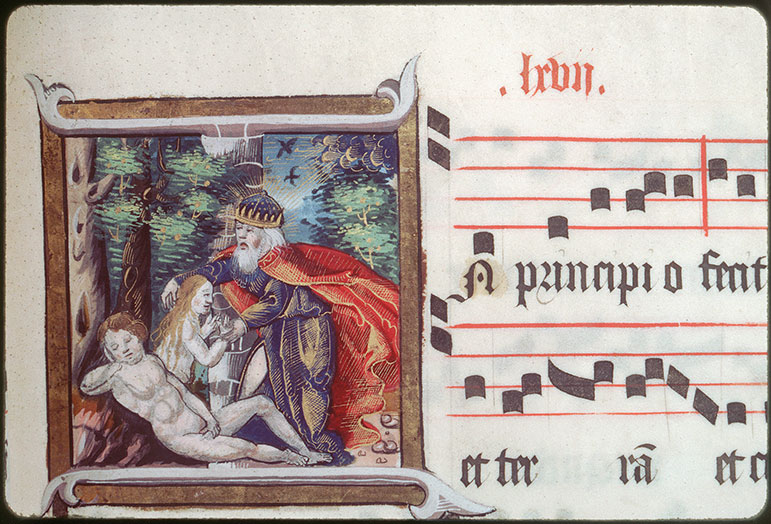 . lxvii.
A principio fecit
et ter rā et c